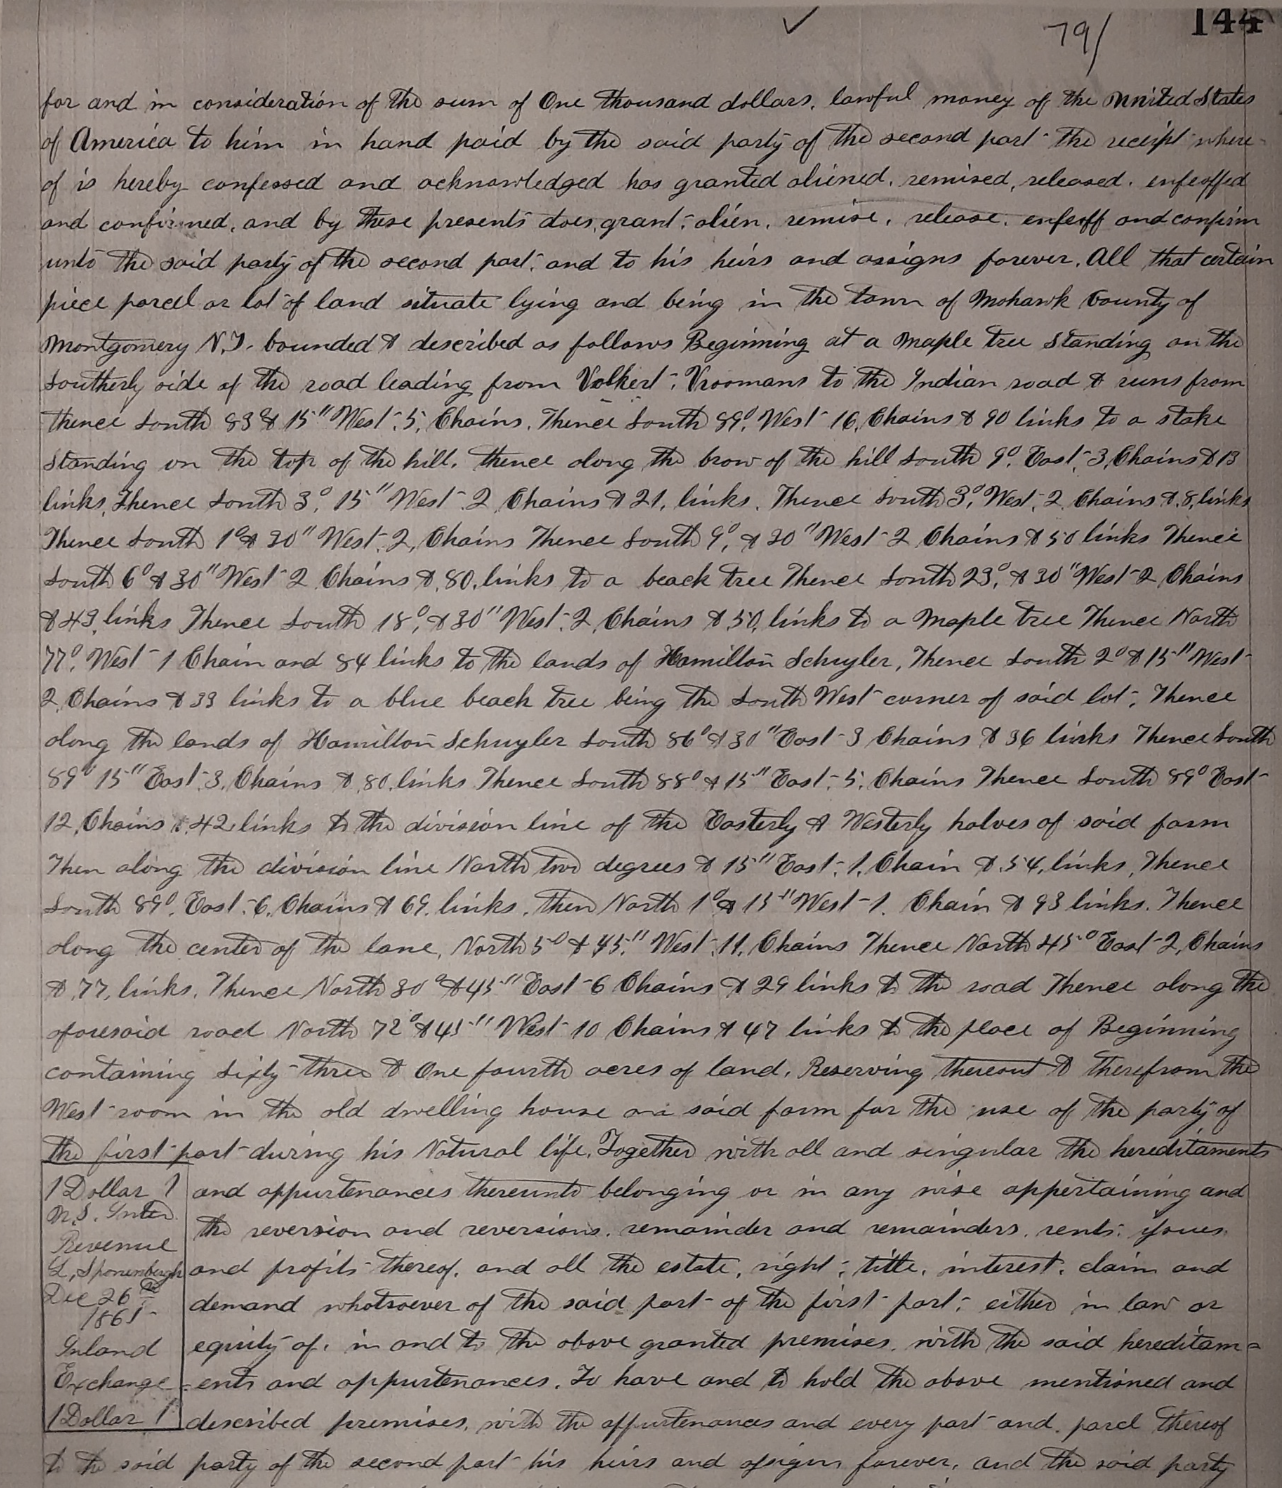 144
79/
for and in consideration of the sum of One thousand dollars, lawful money of the United States
of America to him in hand paid by the said party of the second part the receipt where-
of is hereby confessed and acknowledged has granted aliened, remised, released, enfeoffed
and confirmed, and by these presents does, grant, alien, remise, release, enfeoff and confirm
unto the said party of the second part, and to his heirs and assigns forever, All that certain
piece parcel or lot of land situate lying and being in the town of Mohawk County of
Montgomery N.Y. bounded & described as follows Beginning at a Maple tree Standing on the
Southerly side of the road leading from Volkert Vroomans to the Indian road & runs from
thence South 83° & 15" West 5, Chains, Thence South 89° West 16, Chains & 90 links to a stake
Standing on the top of the hill, thence along the brow of the hill South 9° East 3, Chains & 13
links, Thence South 3° 15" West 2 Chains & 21, links, Thence South 3° West 2 Chains & 8, links
Thence South 1° & 30" West 2, Chains Thence South 9° & 30" West 2 Chains & 50 links Thence
South 6° & 30" West 2 Chains & 80, links to a beach tree Thence South 23° & 30" West 2 Chains
& 43, links Thence South 18° & 30" West 2, Chains & 50, links to a Maple tree Thence North
77° West 1 Chain and 84 links to the lands of Hamilton Schuyler, Thence South 2° & 15" West
2, Chains & 33 links to a blue beach tree being the South West corner of said lot, Thence
along the lands of Hamilton Schuyler South 86° & 30" East 3 Chains & 36 links Thence South
89° 15" East 3, Chains & 80, links Thence South 88° & 15" East 5, Chains Thence South 89° East
12, Chains & 42 links to the division line of the Easterly & Westerly halves of said farm
Then along the division line North two degrees & 15" East 1, Chain & 54, links, Thence
South 89° East 6, Chains & 69, links, then North 1° & 15" West 1. Chain & 93 links. Thence
along the center of the lane, North 5° & 45" West 11, Chains Thence North 45° East 2, Chains
& 77, links, Thence North 30° & 45" East 6 Chains & 29 links to the road Thence along the
aforesaid road North 72° & 45" West 10 Chains & 47 links to the place of Beginning
containing Sixty three & One fourth acres of land, Reserving thereout & therefrom the
West room in the old dwelling house on said farm for the use of the party of
the first part during his Natural life, Together with all and singular the hereditaments
and appurtenances thereunto belonging or in any wise appertaining and
the reversion and reversions, remainder and remainders, rents, issues,
and profits thereof, and all the estate, right, title, interest, claim and
demand whatsoever of the said part of the first part, either in law or
equity of, in and to the above granted premises, with the said hereditam-
ents and appurtenances, To have and to hold the above mentioned and
described premises, with the appurtenances and every part and parcel thereof
to the said party of the second part his heirs and assigns forever, and the said party
1 Dollar 1
U.S. Inter
Revenue
Dec 26th
1865
Inland
Exchange
1 Dollar 1